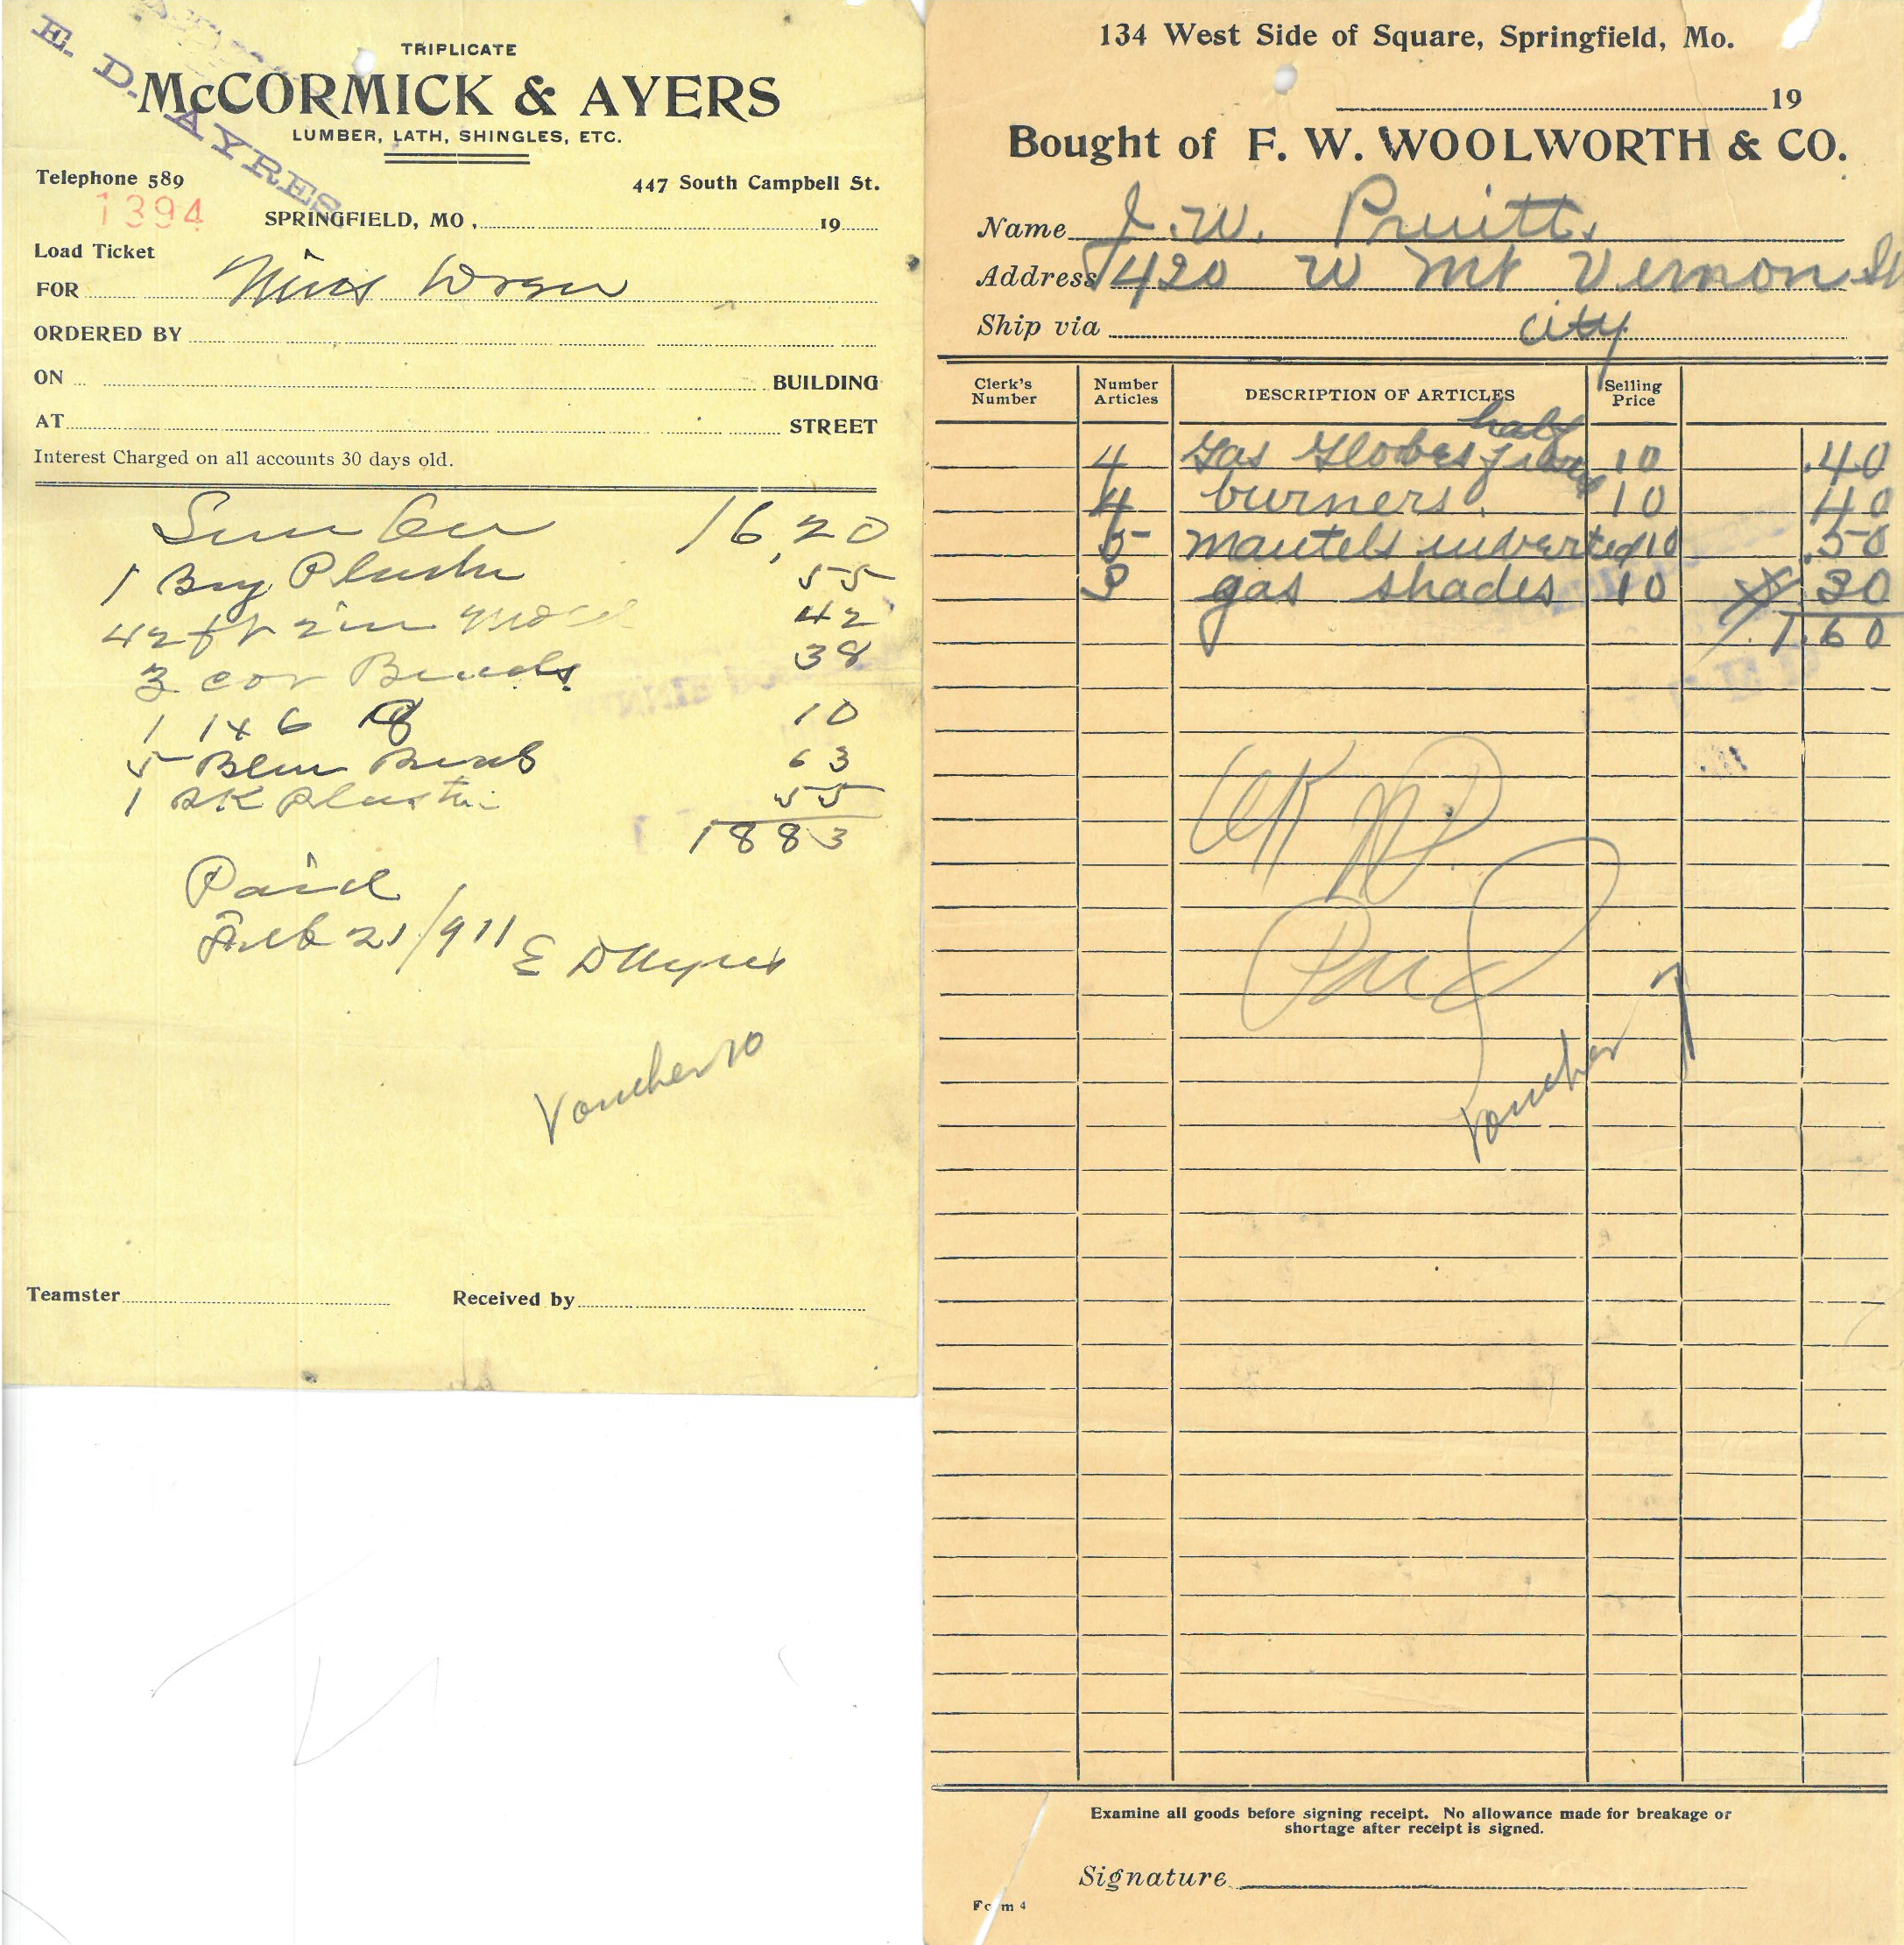 E. D. AYRES
TRIPLICATE
McCORMICK & AYERS
LUMBER, LATH, SHINGLES, ETC.
Telephone 589 447 South Campbell St.
1394
SPRINGFIELD, MO, 19
Load Ticket
FOR Miss
ORDERED BY
ON BUILDING
AT STREET
Interest Charged on all accounts 30 days old.
Lumber 16,20
1 55
42 ft 2 in 42
3 cor Beads 38
1 1x6 10
5 63
1 SK Plaster 55
1883
Paid
Feb 21/911 E D Ayres
Voucher 10
Teamster Received by
134 West Side of Square, Springfield, Mo.
19
Bought of F. W. WOOLWORTH & CO.
Name J. W. Pruitt.
Address 420 W Mt Vernon St
Ship via city
Clerk's Number Number Articles DESCRIPTION OF ARTICLES Selling Price
half
4 Gas Globes 10 .40
4 burners. 10 40
5 mantels inverted 10 .50
3 gas shades 10 30
1.60
OK
Paid
Voucher 7
Examine all goods before signing receipt. No allowance made for breakage or
shortage after receipt is signed.
Signature
Form 4